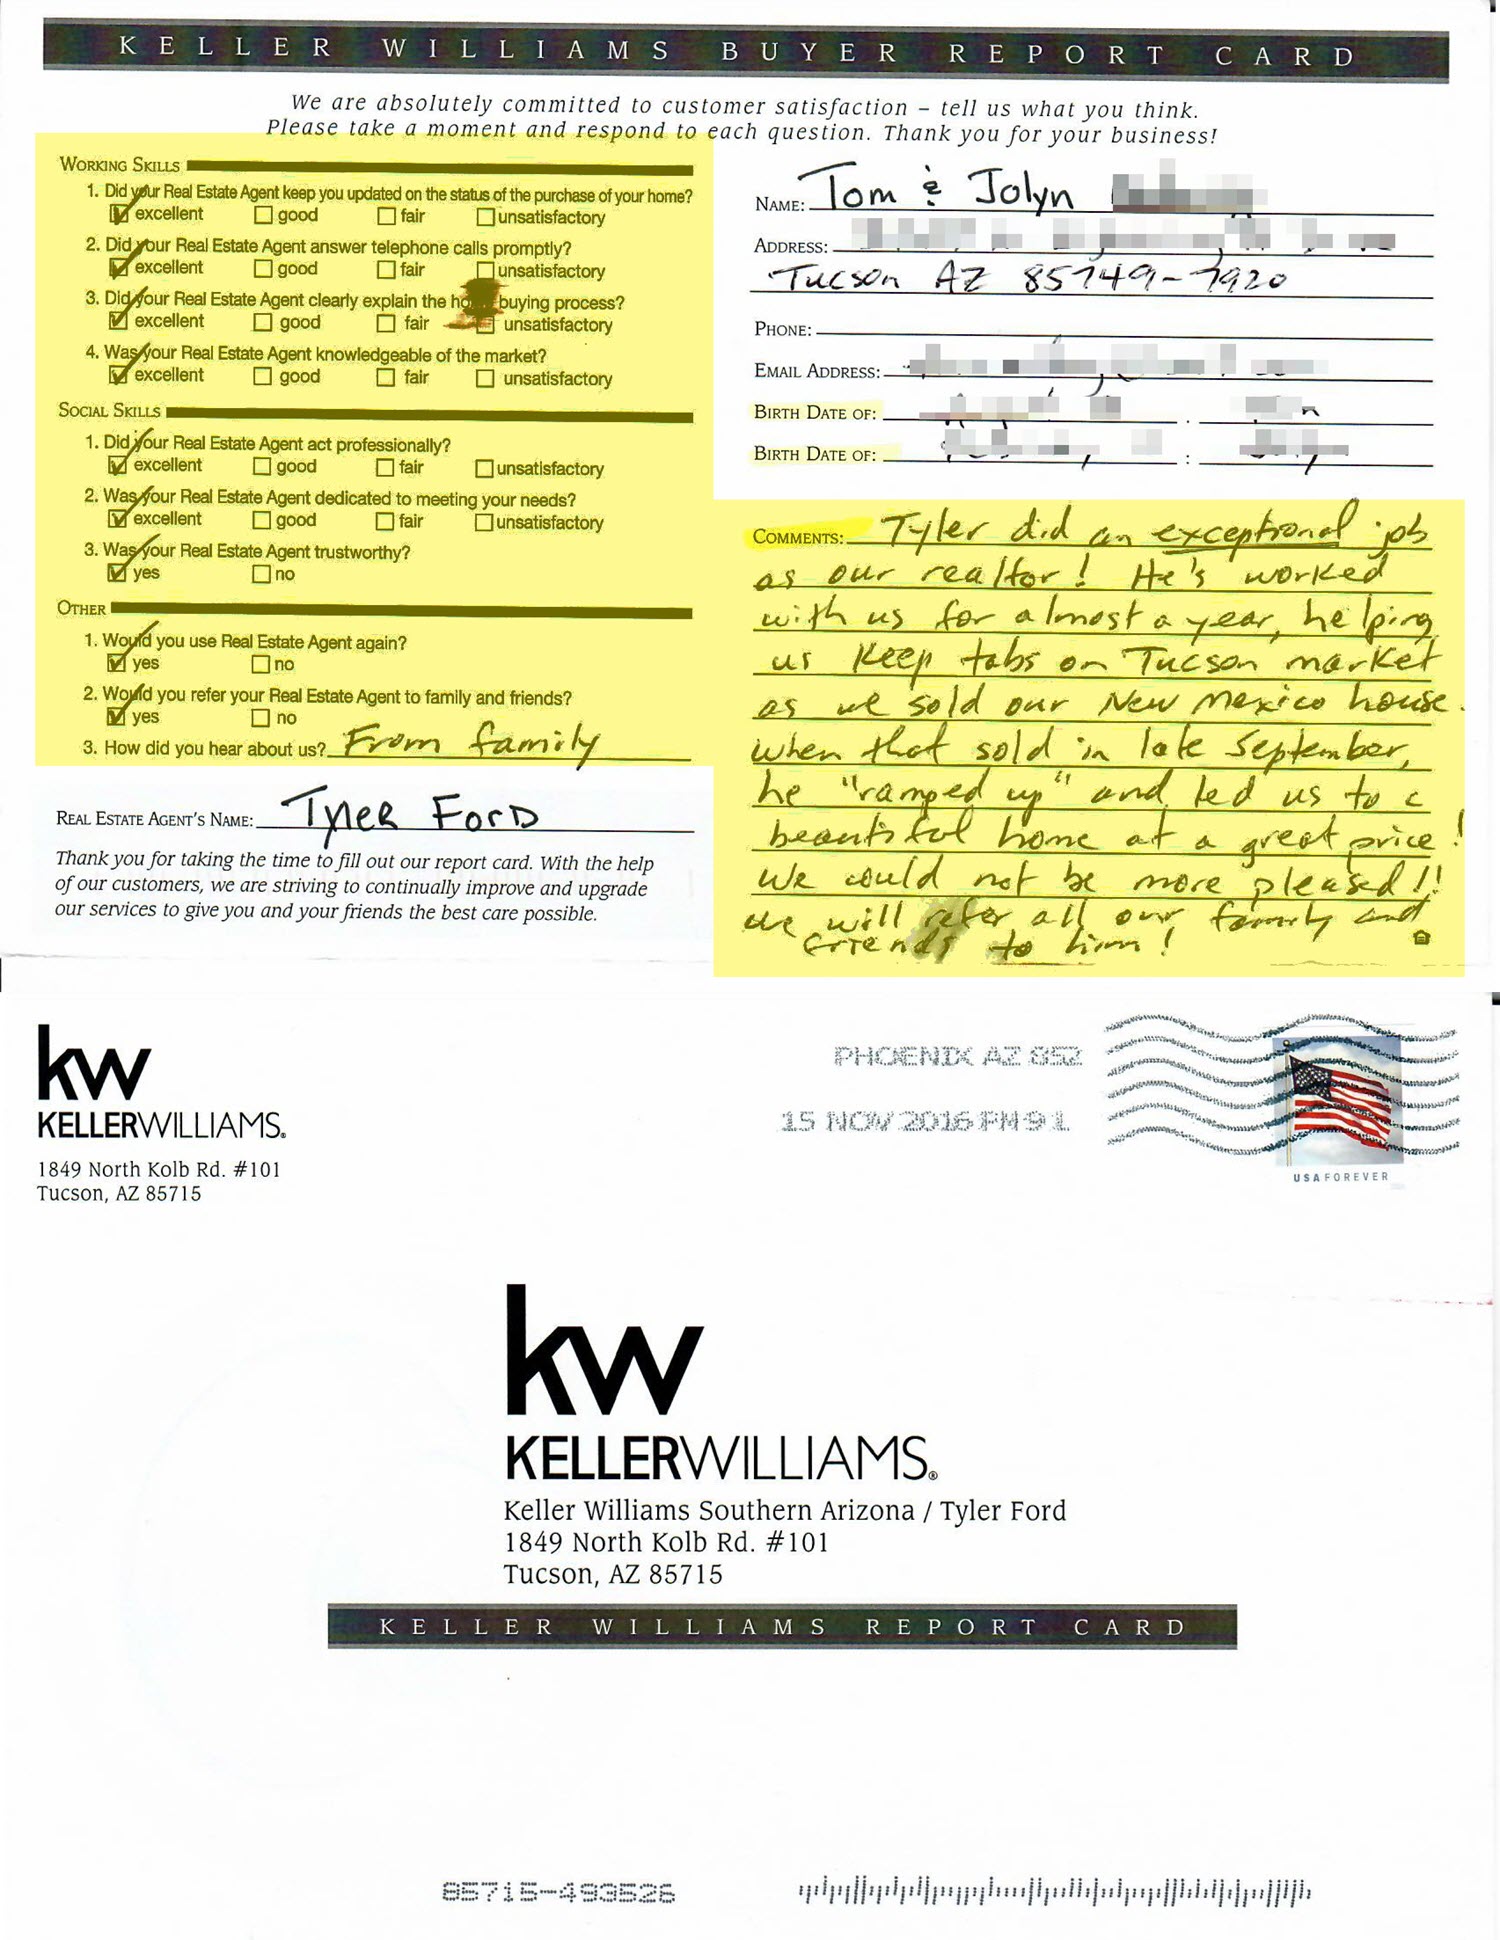 KELLER WILLIAMS BUYER REPORT CARD
We are absolutely committed to customer satisfaction – tell us what you think.
Please take a moment and respond to each question. Thank you for your business!
WORKING SKILLS
1. Did your Real Estate Agent keep you updated on the status of the purchase of your home?
excellent good fair unsatisfactory
2. Did your Real Estate Agent answer telephone calls promptly?
excellent good fair unsatisfactory
3. Did your Real Estate Agent clearly explain the buying process?
excellent good fair unsatisfactory
4. Was your Real Estate Agent knowledgeable of the market?
excellent good fair unsatisfactory
SOCIAL SKILLS
1. Did your Real Estate Agent act professionally?
excellent good fair unsatisfactory
2. Was your Real Estate Agent dedicated to meeting your needs?
excellent good fair unsatisfactory
3. Was your Real Estate Agent trustworthy?
yes no
OTHER
1. Would you use Real Estate Agent again?
yes no
2. Would you refer your Real Estate Agent to family and friends?
yes no
3. How did you hear about us? From family
REAL ESTATE AGENT'S NAME: Tyler Ford
Thank you for taking the time to fill out our report card. With the help
of our customers, we are striving to continually improve and upgrade
our services to give you and your friends the best care possible.
NAME: Tom & Jolyn
ADDRESS:
Tucson AZ 85749-7920
PHONE:
EMAIL ADDRESS:
BIRTH DATE OF:
BIRTH DATE OF:
COMMENTS: Tyler did an exceptional job
as our realtor! He's worked
with us for almost a year, helping
us keep tabs on Tucson market
as we sold our New Mexico house.
when that sold in late September,
he "ramped up" and led us to a
beautiful home at a great price!
We could not be more pleased!!
We will refer all our family and
friends to him!
kw
KELLERWILLIAMS.
1849 North Kolb Rd. #101
Tucson, AZ 85715
PHOENIX AZ 852
15 NOV 2016 PM 9 L
USA FOREVER
kw
KELLERWILLIAMS®
Keller Williams Southern Arizona / Tyler Ford
1849 North Kolb Rd. #101
Tucson, AZ 85715
KELLER WILLIAMS REPORT CARD
85715-493526